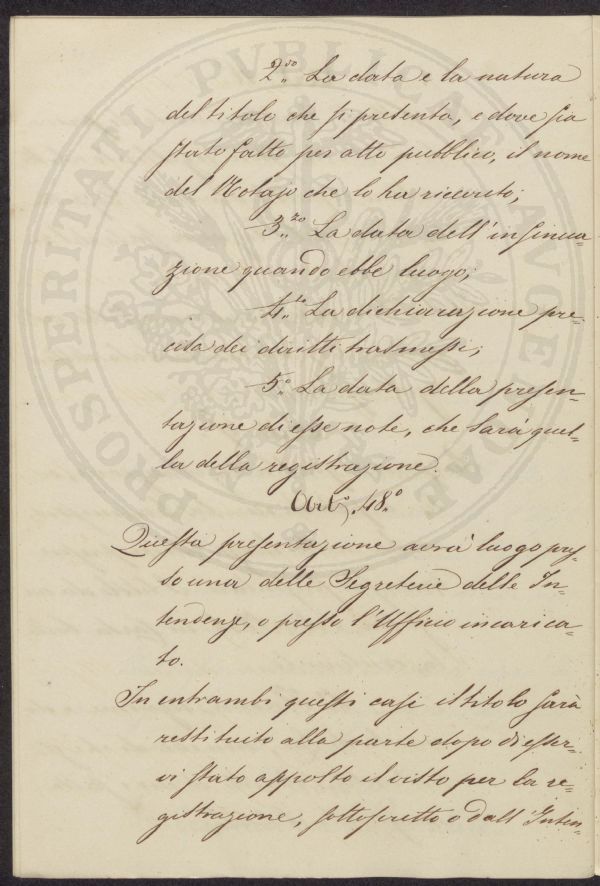 2.do La data e la natura
del titolo che si presenta, e dove sia
stato fatto per atto pubblico, il nome
del Notajo che lo ha ricevuto;
3.zo La data dell'insinua=
zione quando ebbe luogo;
4.to La dichiarazione pre=
cisa dei diritti trasmessi;
5.o La data della presen=
tazione di esse note, che sarà quel=
la della registrazione.
Art.o 48.o
Questa presentazione avrà luogo pres=
so una delle Segreterie delle In=
tendenze, o presso l'Uffizio incarica=
to.
In entrambi questi casi il titolo sarà
restituito alla parte dopo di esser=
vi stato apposto il visto per la re=
gistrazione, sottoscritto o dall'Inten=
PROSPERITATI PVBLICAE AVGENDAE